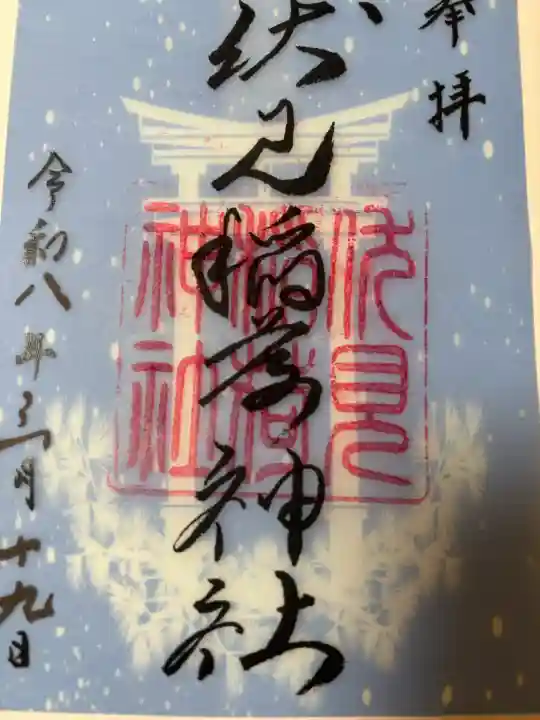 奉拝
伏見稲荷神社
伏見
稲荷
神社
令和八年二月十九日